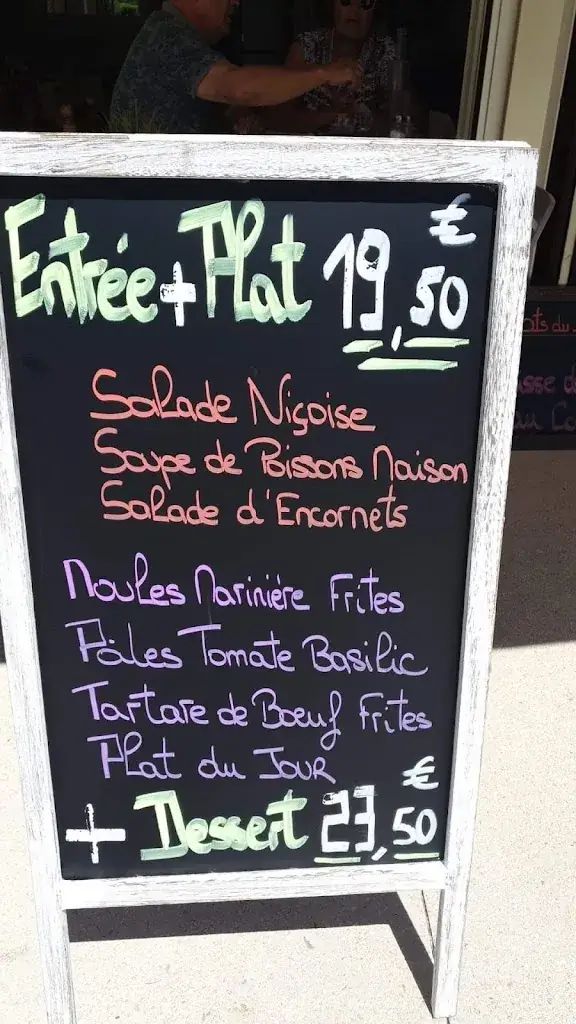 Entrée + Plat 19,50 €
Salade Niçoise
Soupe de Poissons Maison
Salade d'Encornets
Moules Marinière Frites
Pâtes Tomate Basilic
Tartare de Boeuf Frites
Plat du Jour
+ Dessert 23,50 €